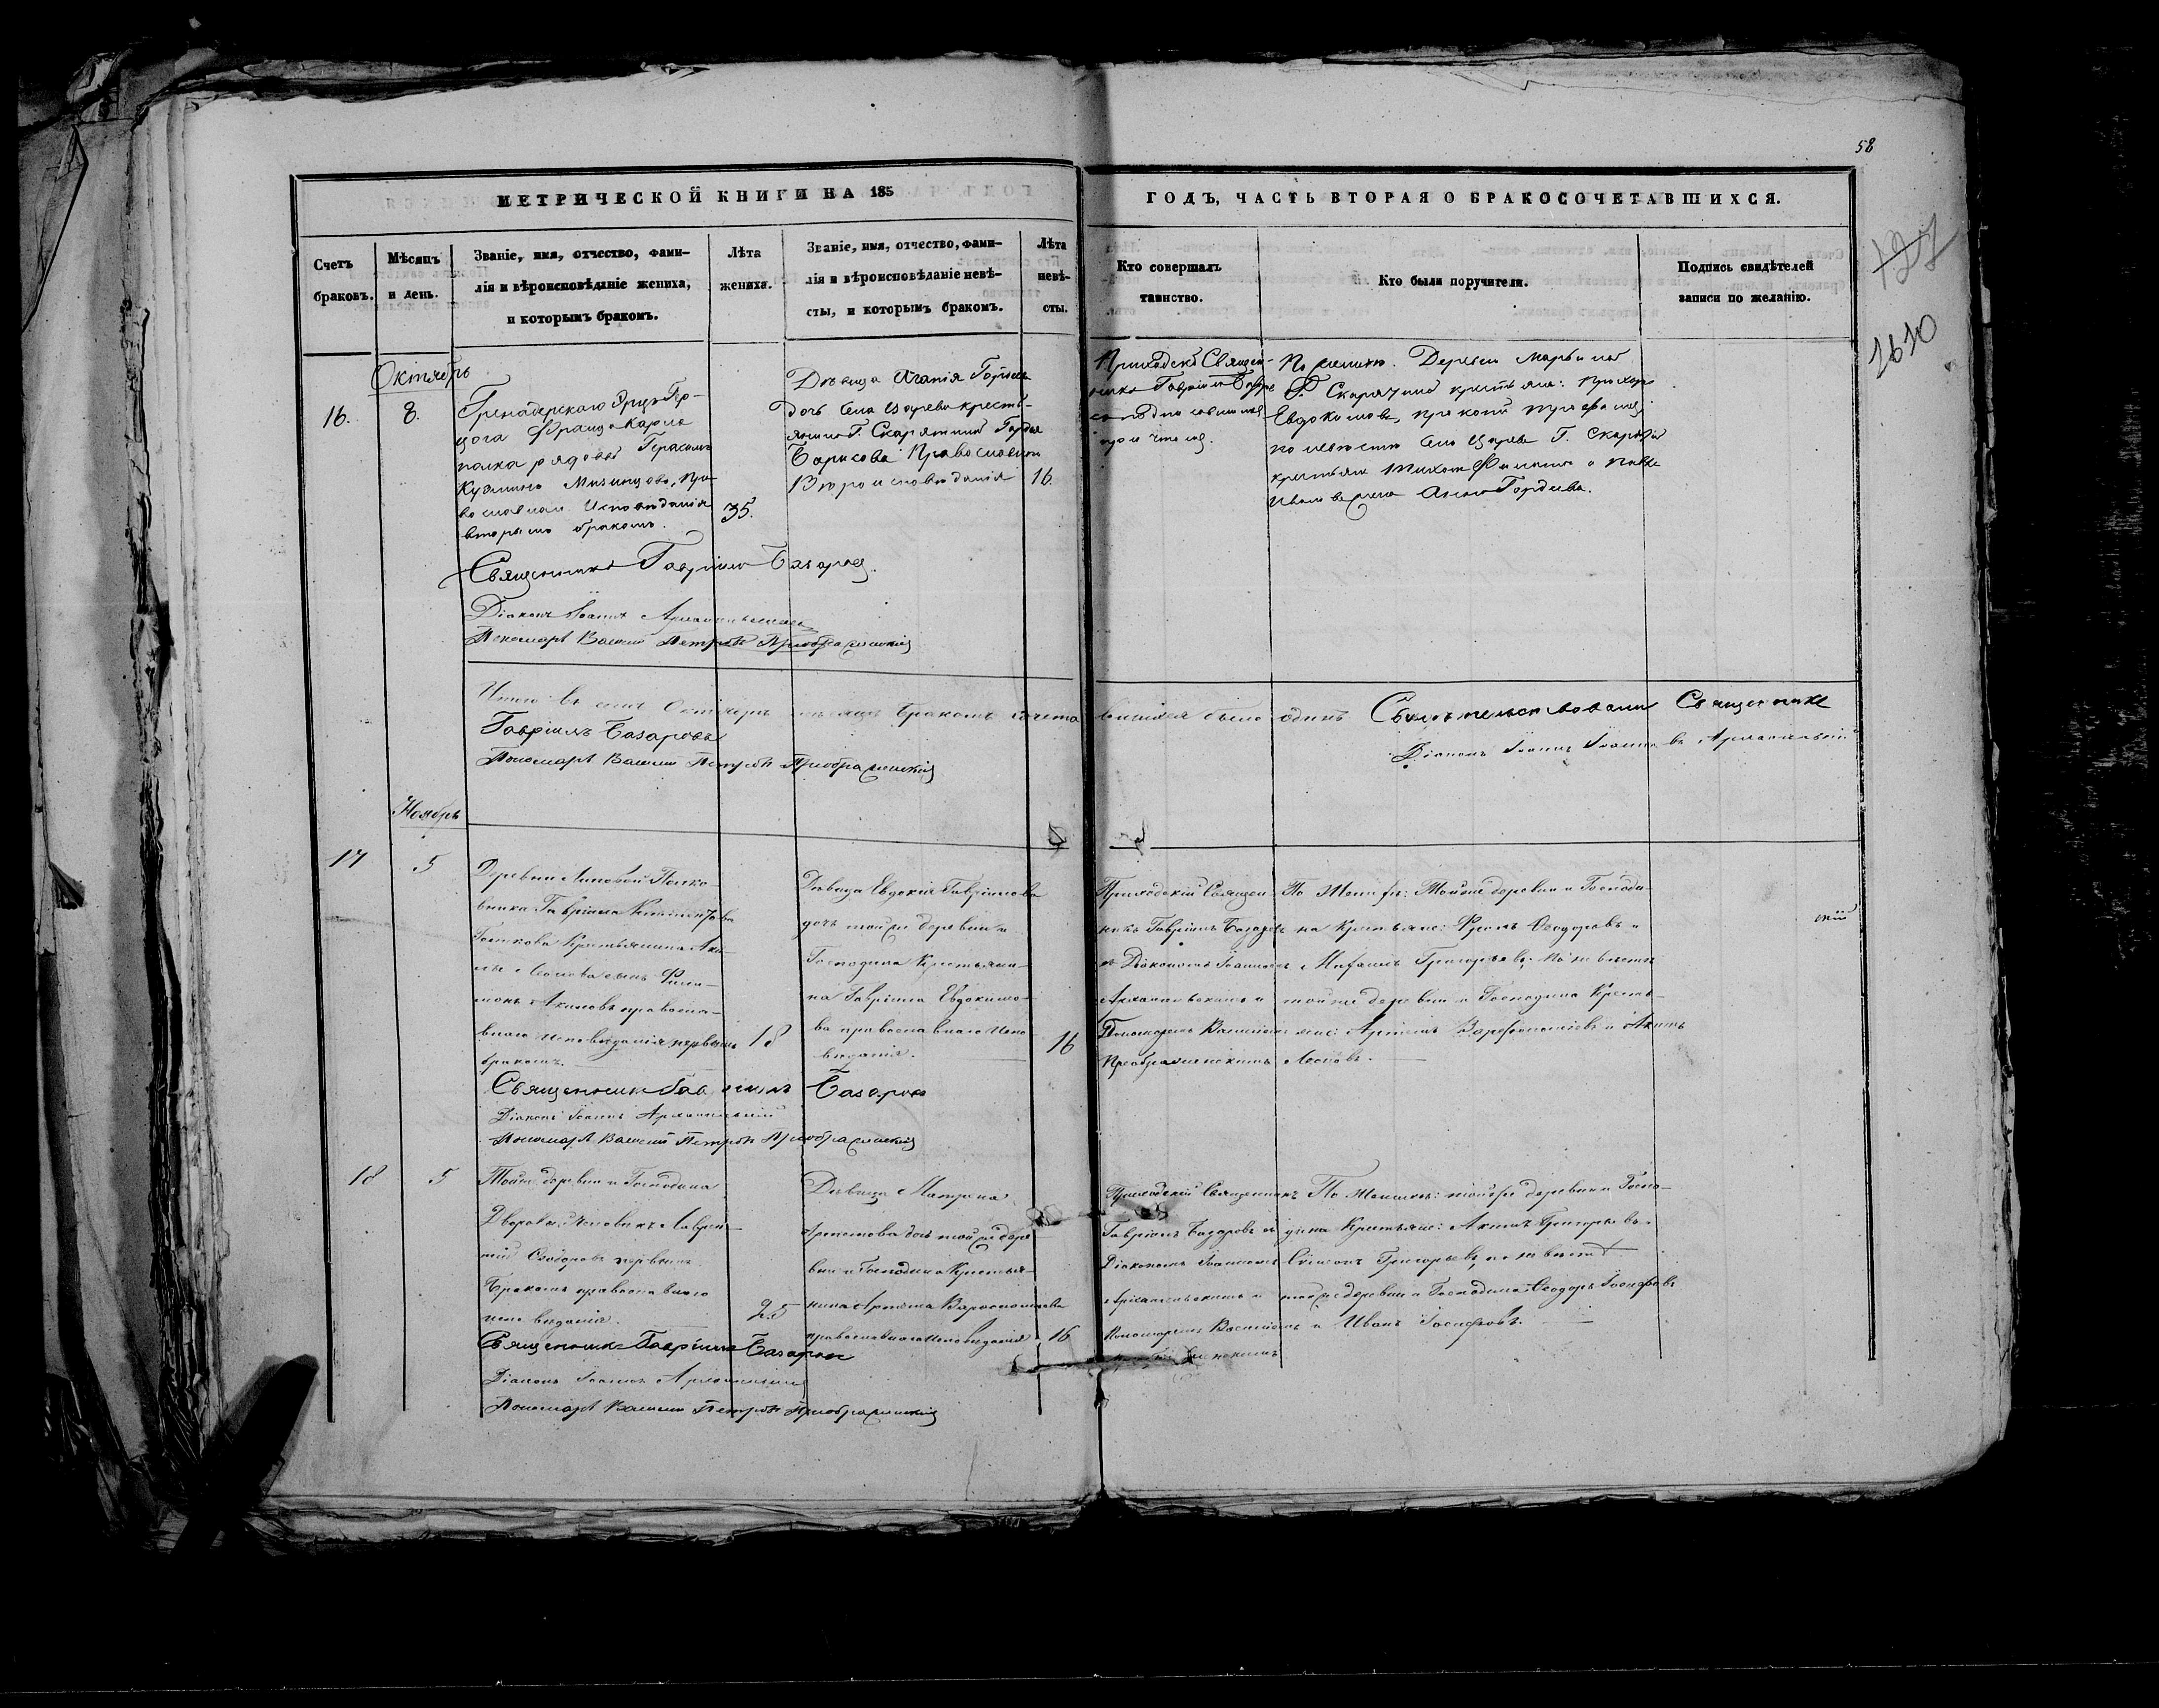 58
МЕТРИЧЕСКОЙ КНИГИ НА 185
ГОДЪ, ЧАСТЬ ВТОРАЯ О БРАКОСОЧЕТАВШИХСЯ.
Счетъ браковъ.
Мѣсяцъ и день.
Званіе, имя, отчество, фами-
лія и вѣроисповѣданіе жениха,
и которымъ бракомъ.
Лѣта
жениха.
Званіе, имя, отчество, фами-
лія и вѣроисповѣданіе невѣ-
сты, и которымъ бракомъ.
Лѣта
невѣ-
сты.
Кто совершалъ
таинство.
Кто были поручители.
Подпись свидѣтелей
записи по желанію.
1610
Октябрь
16.
8.
Гренадерскаго Эрцъ Гер-
цога Франца Карла
полка рядовой Герасимъ
Кузминъ
вославнаго Исповѣданія
вторымъ бракомъ.
35.
Дѣвица Агапія
дочь села Царева кресть-
янина Г. Скарятина Гордея
Борисова Православнаго
Вѣроисповѣданія
16.
Приходскій Священ-
никъ Гавріилъ
По женихѣ. Деревни Марьиной
Г. Скарятина крестьяне:
Евдокимовъ, Прокопій
по невѣстѣ села Царева Г.
крестьяне Тихонъ и Павелъ
Гордѣевъ.
Священникъ Гавріилъ Базаровъ.
Діаконъ Іоаннъ Архангельскій
Пономарь Василій Петровъ Преображенскій
Итого въ семъ Октябрѣ мѣсяцѣ бракомъ сочетавшихся было одинъ Свидѣтельствовали Священникъ
Гавріилъ Базаровъ
Діаконъ Іоаннъ Іоанновъ Архангельскій
Пономарь Василій Петровъ Преображенскій
Ноябрь
17
5
Деревни Липовой Полко-
вника Гавріила
Крестьянина Аки-
ма сынъ Фили-
монъ Акимовъ правосла-
внаго исповѣданія первымъ
бракомъ.
18
Дѣвица Евдокія Гавріилова
дочь той же деревни и
Господина Крестьяни-
на Гавріила Евдокимо-
ва православнаго испо-
вѣданія.
16
Приходскій Священ-
никъ Гавріилъ Базаровъ
съ Діакономъ Іоанномъ
Архангельскимъ и
Пономаремъ Василіемъ
Преображенскимъ
По Женихѣ: Той же деревни и Господи-
на Крестьяне: Фролъ Ѳеодоровъ и
Михаилъ Григорьевъ; По невѣстѣ
той же деревни и Господина Кресть-
яне: Артемъ Варфоломеевъ и Акимъ
Священникъ Гавріилъ Базаровъ
Діаконъ Іоаннъ Архангельскій
Пономарь Василій Петровъ Преображенскій
18
5
Той же деревни и Господина
Дворовый человѣкъ Лаврен-
тій Ѳеодоровъ первымъ
бракомъ православнаго
исповѣданія.
25
Дѣвица Матрона
Артемова дочь той же дере-
вни и Господина Крестья-
нина Артема Варфоломеева
православнаго исповѣданія
16
Приходскій Священникъ
Гавріилъ Базаровъ съ
Діакономъ Іоанномъ
Архангельскимъ и
Пономаремъ Василіемъ
По Женихѣ: той же деревни и Госпо-
дина Крестьяне: Акимъ Григорьевъ
Григорьевъ, по невѣстѣ
той же деревни и Господина Ѳеодоръ Іосифовъ
и Иванъ Іосифовъ.
Священникъ Гавріилъ Базаровъ
Діаконъ Іоаннъ Архангельскій
Пономарь Василій Петровъ Преображенскій